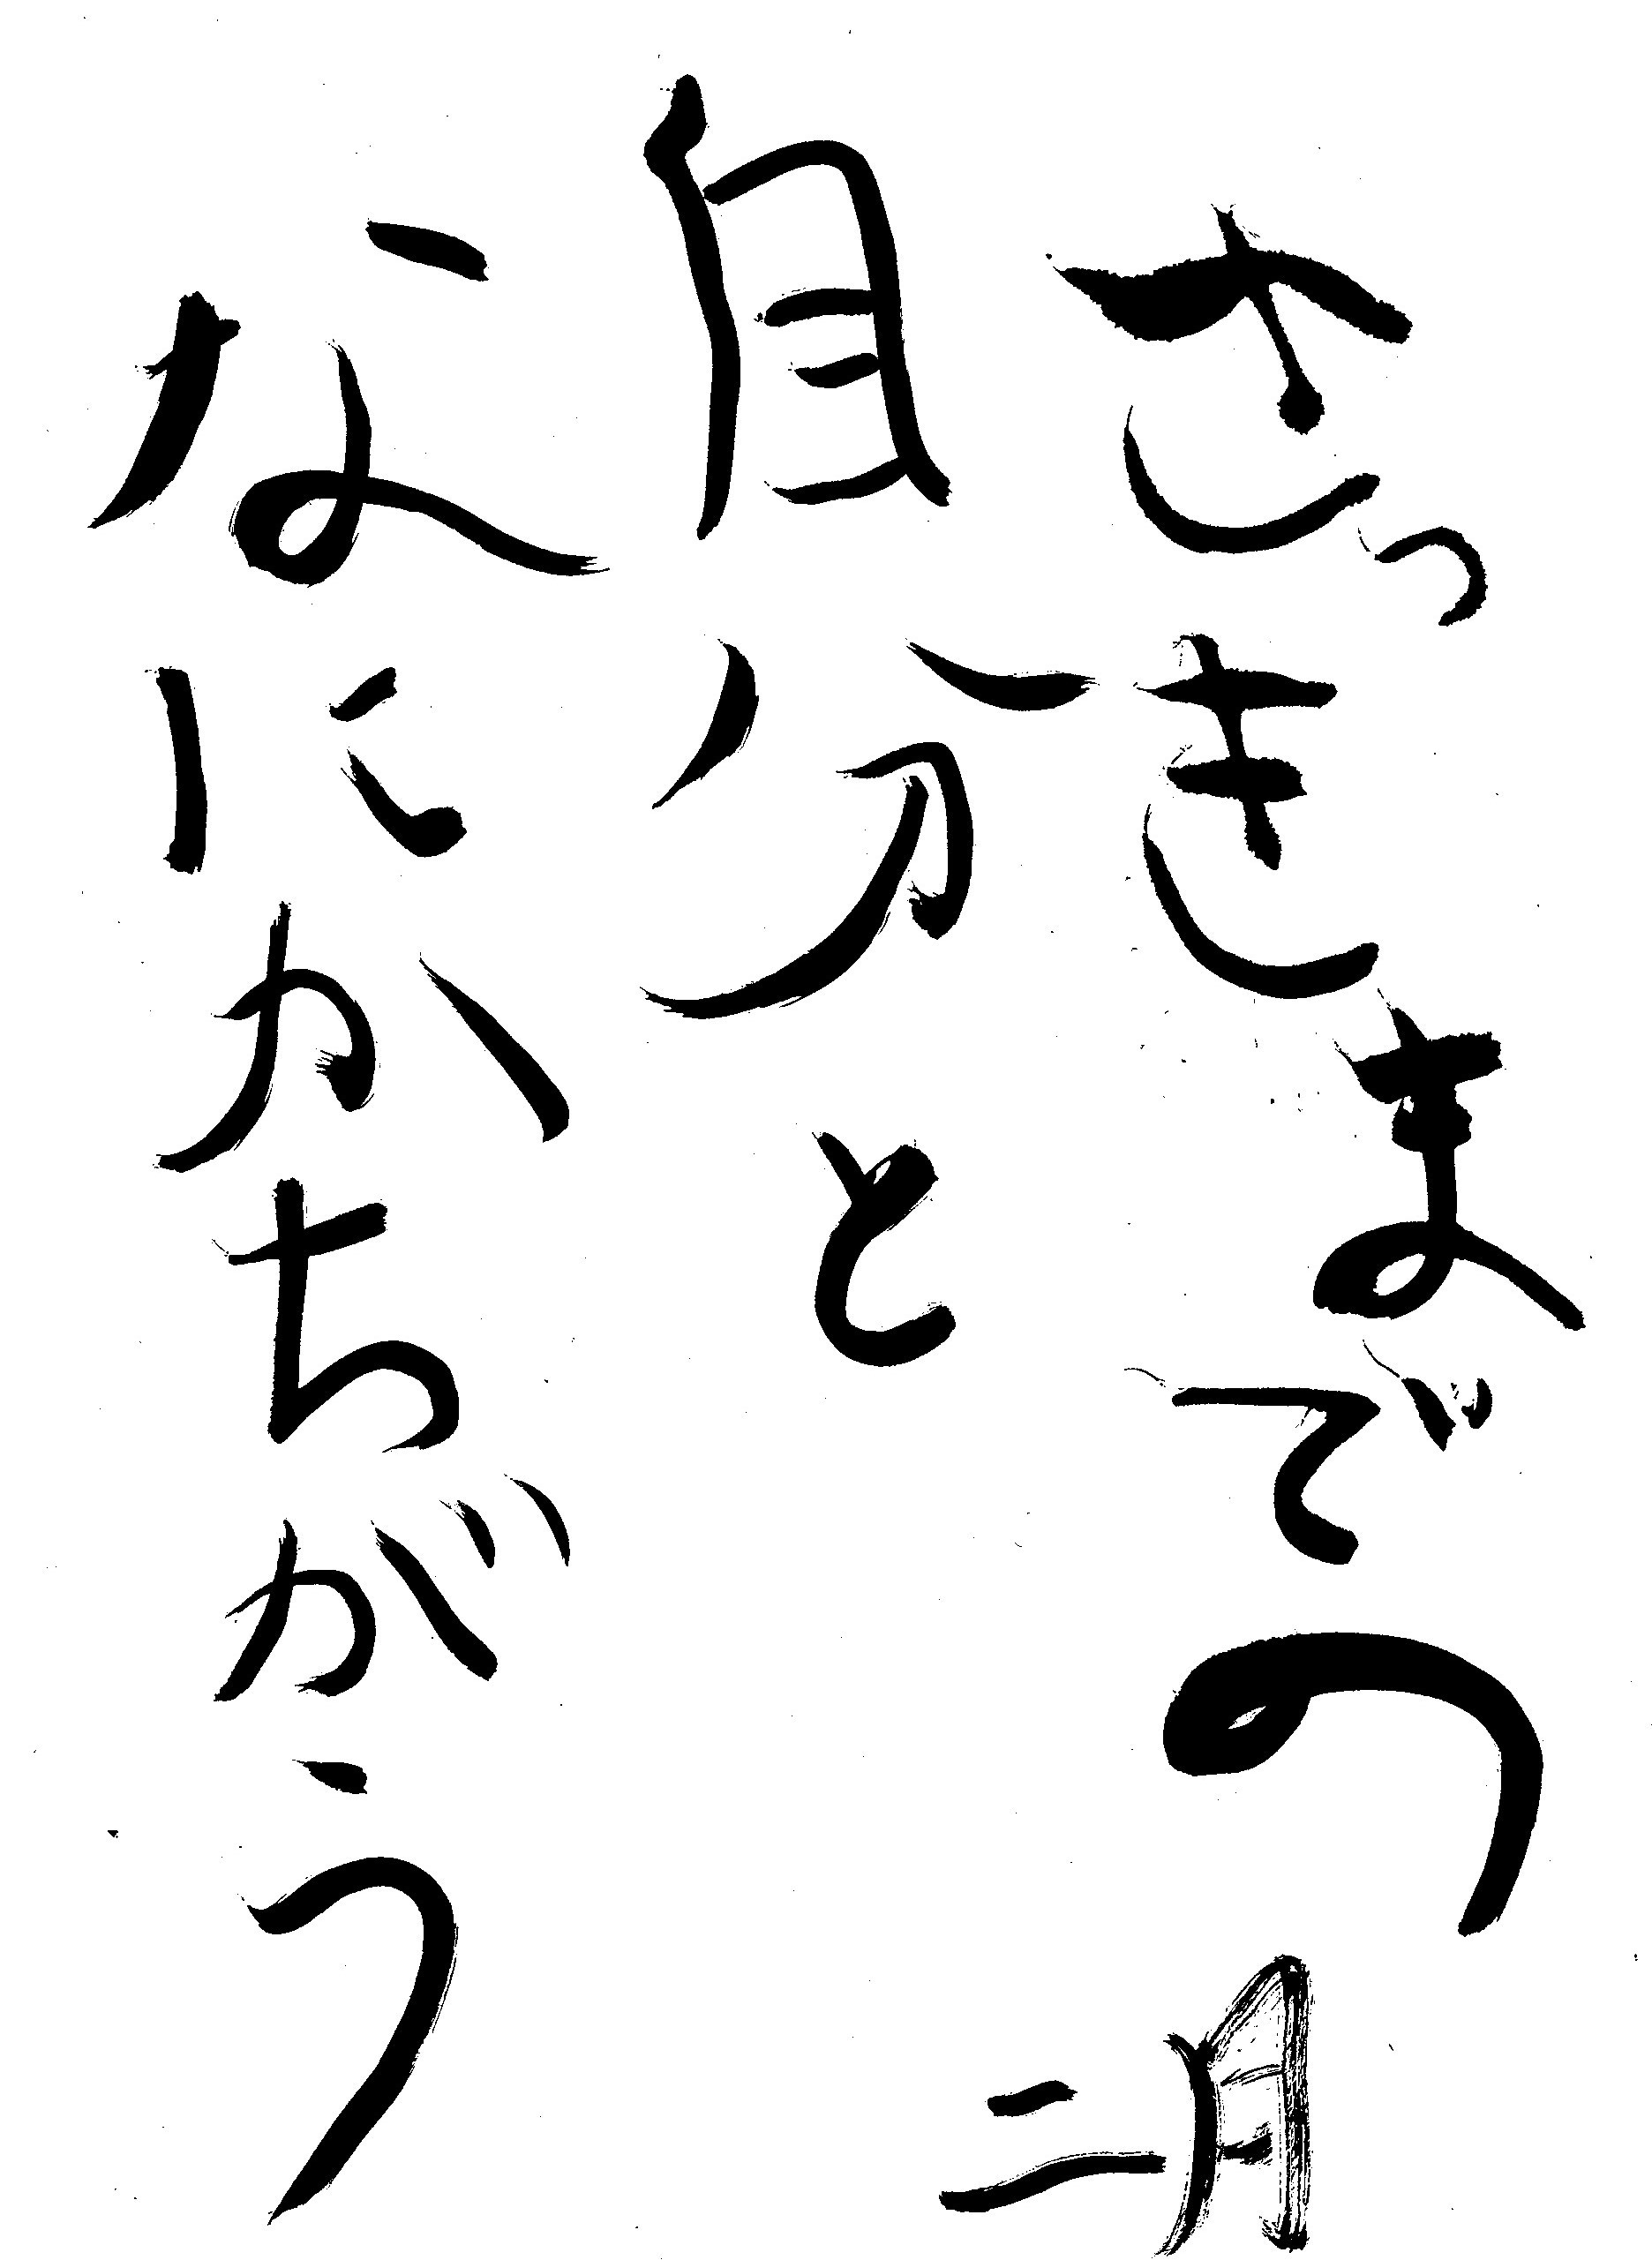 さっきまでの
自分と
なにかちがう